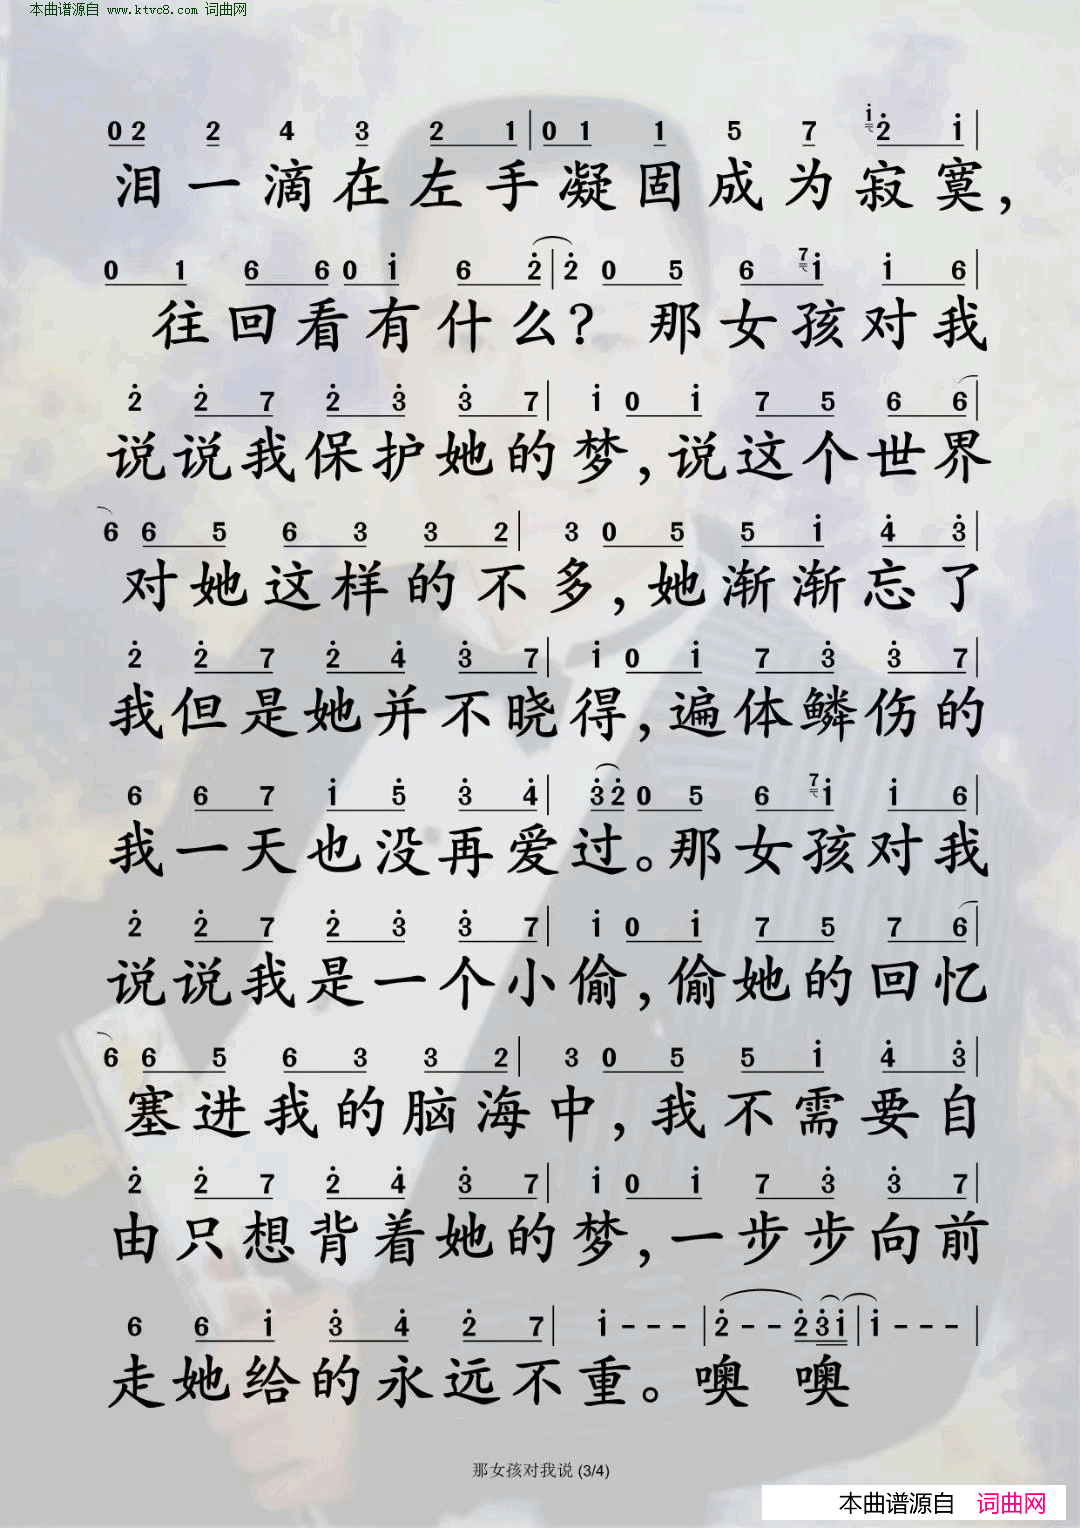 本曲谱源自 www.ktvc8.com 词曲网
0 2 2 4 3 2 1 | 0 1 1 5 7 i 2 i |
泪一滴在左手凝固成为寂寞，
0 1 6 6 0 i 6 2 | 2 0 5 6 7 i i 6 |
往回看有什么？ 那女孩对我
2 2 7 2 3 3 7 | i 0 i 7 5 6 6 |
说说我保护她的梦，说这个世界
6 6 5 6 3 3 2 | 3 0 5 5 i 4 3 |
对她这样的不多，她渐渐忘了
2 2 7 2 4 3 7 | i 0 i 7 3 3 7 |
我但是她并不晓得，遍体鳞伤的
6 6 7 i 5 3 4 | 3 2 0 5 6 7 i i 6 |
我一天也没再爱过。那女孩对我
2 2 7 2 3 3 7 | i 0 i 7 5 7 6 |
说说我是一个小偷，偷她的回忆
6 6 5 6 3 3 2 | 3 0 5 5 i 4 3 |
塞进我的脑海中，我不需要自
2 2 7 2 4 3 7 | i 0 i 7 3 3 7 |
由只想背着她的梦，一步步向前
6 6 i 3 4 2 7 | i - - - | 2 - - 2 3 i | i - - - |
走她给的永远不重。噢 噢
那女孩对我说 (3/4)
本曲谱源自 词曲网